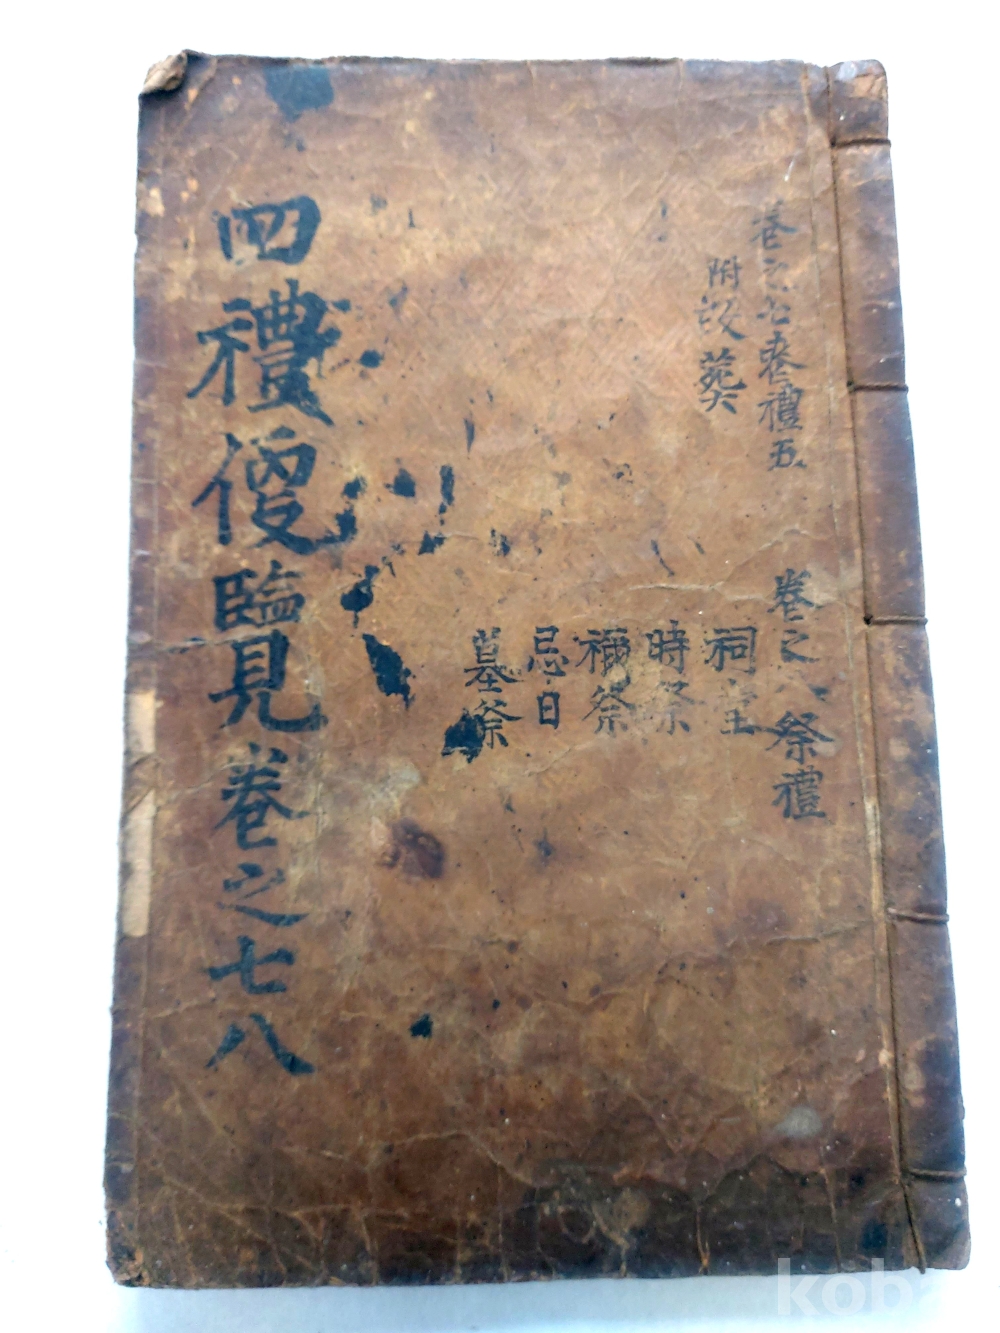 卷之七 喪禮五
附改葬
卷之八 祭禮
祠堂
時祭
禰祭
忌日
墓祭
四禮便覽卷之七八
kob